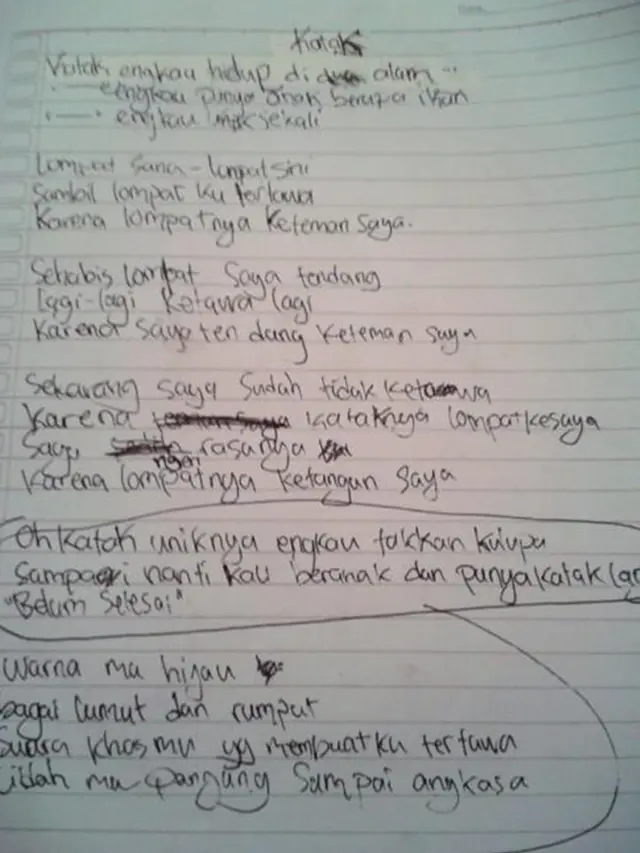 Katak
Katak engkau hidup di alam ...
engkau punya anak berupa ikan
engkau sekali
Lompat sana-lompat sini
Sambil lompat ku tertawa
Karena lompatnya keteman saya.
Sehabis lompat saya tendang
lagi-lagi ketawa lagi
Karena saya ten dang keteman saya
Sekarang saya sudah tidak ketawa
Karena kataknya lompat kesaya
Saya ngeri rasanya
Karena lompatnya ketangan saya
Oh katak uniknya engkau takkan kulupa
Sampai nanti kau beranak dan punya katak lag
"Belum Selesai"
Warna mu hijau
bagai lumut dan rumput
Suara khasmu yg membuatku tertawa
Lidah mu panjang sampai angkasa